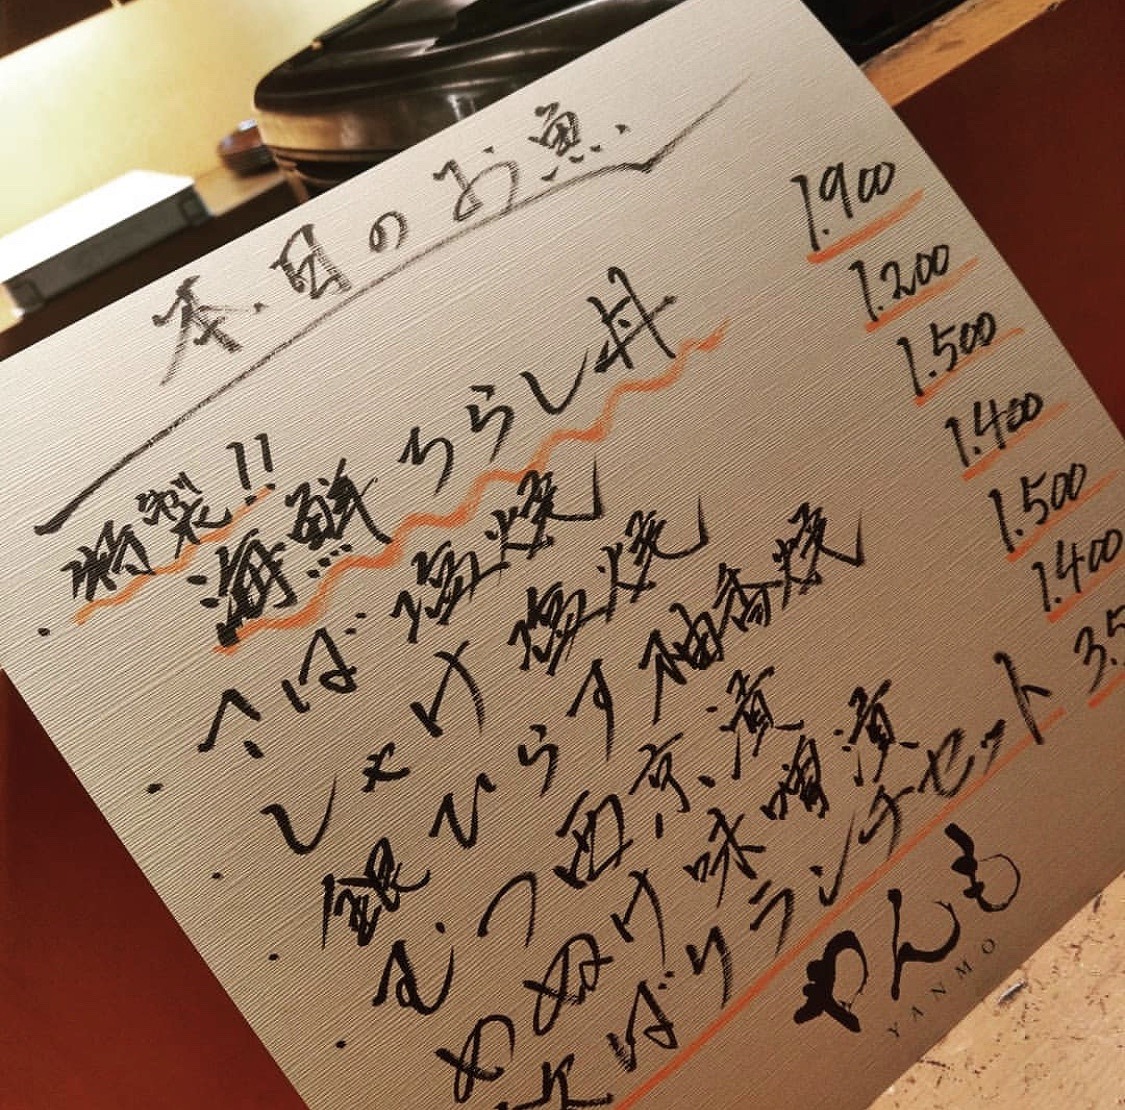 本日のお魚
・特製!!
海鮮ちらし丼 1.900
・さば塩焼 1.200
・しゃけ塩焼 1.500
・銀ひらす柚香焼 1.400
・むつ西京漬 1.500
めぬけ味噌漬 1.400
ばりランチセット 3.5
やんも
YANMO